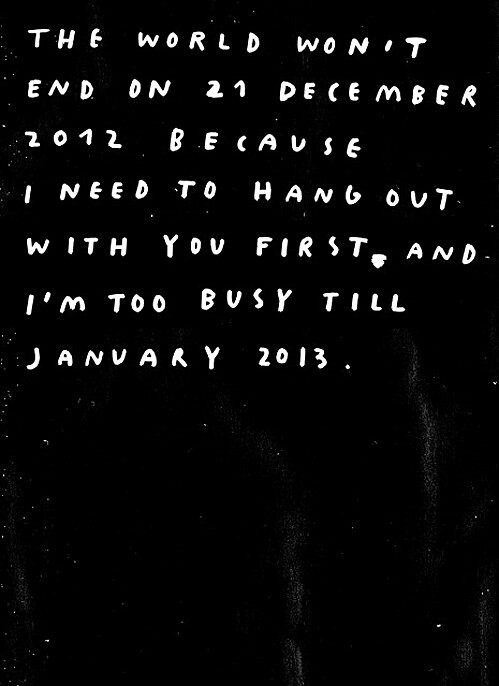 THE WORLD WON'T
END ON 21 DECEMBER
2012 BECAUSE
I NEED TO HANG OUT
WITH YOU FIRST, AND
I'M TOO BUSY TILL
JANUARY 2013.